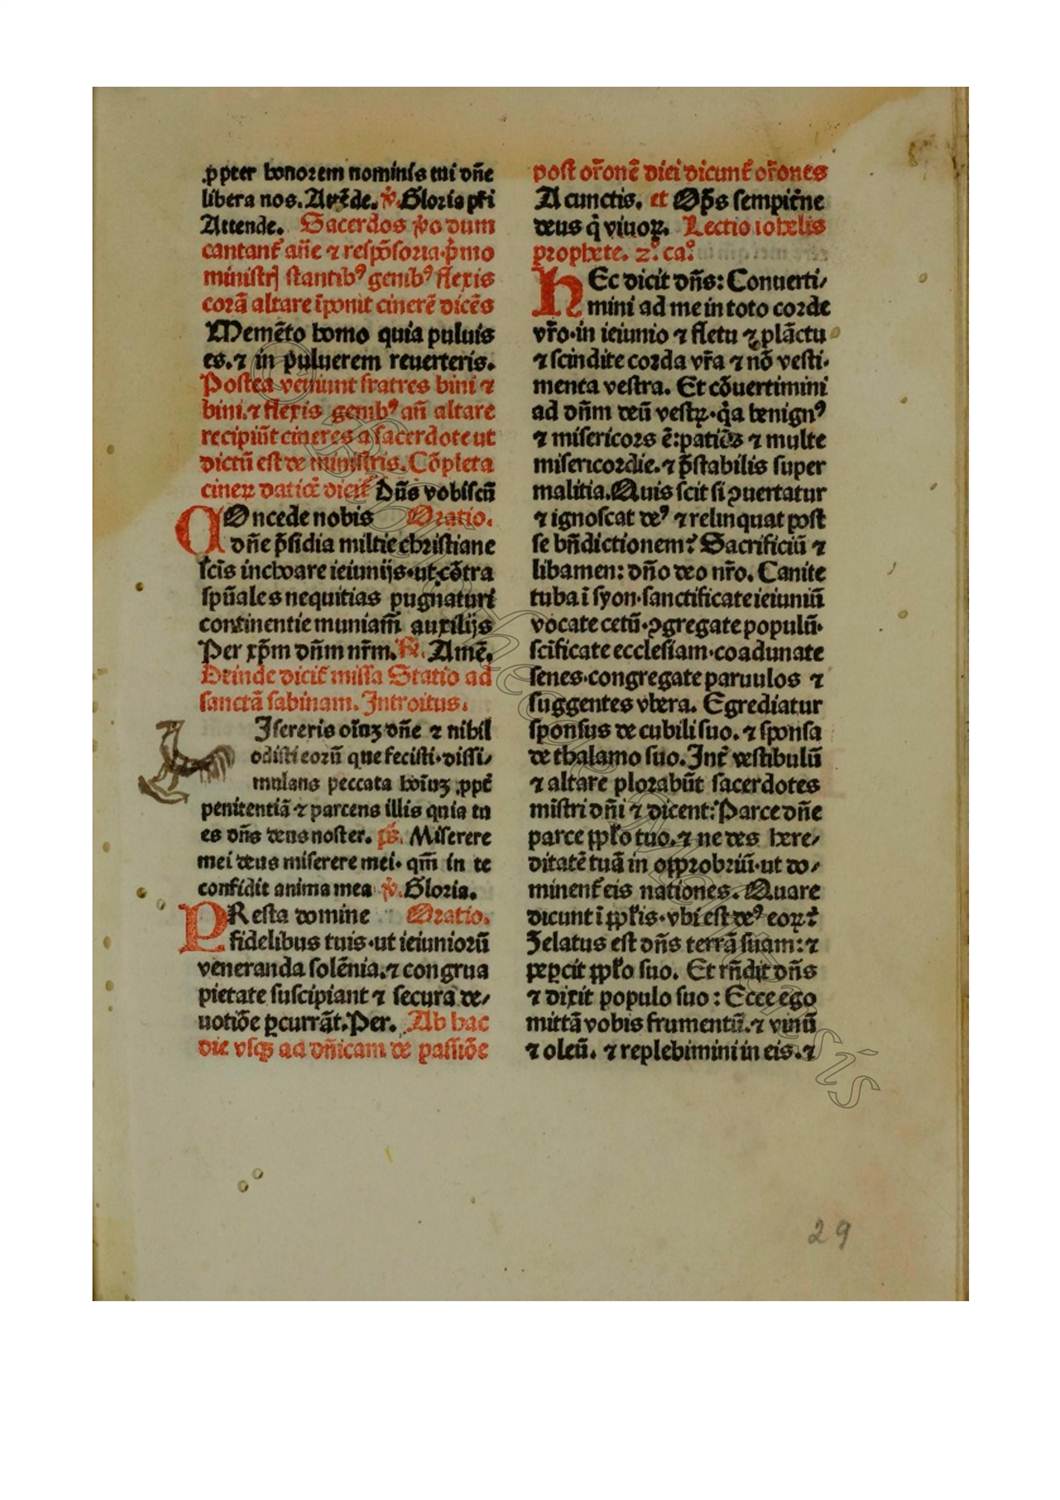 ꝓpter honorem nominis tui dñe
libera nos. Attẽde. ℣. Gloria pr̃i
Attende. Sacerdos ꝟo dum
cantant᷑ añe ⁊ respõsoria·p̃mo
ministrꝭ stantibꝰ genibꝰ flexis
corã altare ĩponit cinerẽ dicẽs
Memẽto homo quia puluis
es.⁊ in puluerem reuerteris.
Postea veniunt fratres bini ⁊
bini.⁊ flexis genibꝰ añ altare
recipiũt cineres a sacerdote ut
dictũ est de ministris. Cõpleta
cineꝝ datiõe dicit᷑ Dñs vobiscũ
COncede nobis Oratio.
dñe p̃sidia militie christiane
sc̃is inchoare ieiunijs·ut cõtra
spũales nequitias pugnaturi
continentie muniam̃ auxilijs
Per xp̃m dñm nr̃m. ℟. Amẽ.
Deinde dicit᷑ missa Statio ad
sanctã sabinam. Introitus.
Isereris oĩuꝫ dñe ⁊ nihil
odisti eorũ que fecisti·dissi/
mulans peccata hoĩuꝫ ꝓpt̃
penitentiã ⁊ parcens illis quia tu
es dñs deus noster. p̃s. Miserere
mei deus miserere mei· qm̃ in te
confidit anima mea ℣. Gloria.
PResta domine Oratio.
fidelibus tuis·ut ieiuniorũ
veneranda solẽnia.⁊ congrua
pietate suscipiant ⁊ secura de/
uotiõe ꝑcurrãt. Per. Ab hac
die vsqꝫ ad dñicam de passiõe
post or̃onẽ diei dicunt᷑ or̃ones
A cunctis. et Om̃ps sempit̃ne
deus q̃ viuoꝝ. Lectio iohelis
prophete. 2.° ca.°
HEc dicit dñs: Conuerti/
mini ad me in toto corde
vr̃o·in ieiunio ⁊ fletu ⁊ plãctu
⁊ scindite corda vr̃a ⁊ nõ vesti·
menta vestra. Et cõuertimini
ad dñm deũ vestꝝ·q̃a benignꝰ
⁊ misericors ẽ:patiẽs ⁊ multe
misericordie.⁊ p̃stabilis super
malitia. Quis scit si ꝯuertatur
⁊ ignoscat deꝰ ⁊ relinquat post
se bñdictionem? Sacrificiũ ⁊
libamen: dño deo nr̃o. Canite
tuba ĩ syon·sanctificate ieiuniũ
vocate cetũ·ꝯgregate populũ·
sc̃ificate ecclesiam·coadunate
senes·congregate paruulos ⁊
suggentes vbera. Egrediatur
sponsus de cubili suo.⁊ sponsa
de thalamo suo. Int᷑ vestibulũ
⁊ altare plorabũt sacerdotes
mĩstri dñi ⁊ dicent: Parce dñe
parce ppl̃o tuo.⁊ ne des here/
ditatẽ tuã in opprobriũ·ut do/
minent᷑ eis nationes. Quare
dicunt ĩ ppl̃is·vbi est deꝰ eoꝝ?
Zelatus est dñs terrã suam:⁊
peꝑcit ppl̃o suo. Et rñdit dñs
⁊ dixit populo suo: Ecce ego
mittã vobis frumentũ.⁊ vinũ
⁊ oleũ. ⁊ replebimini in eis.⁊
29